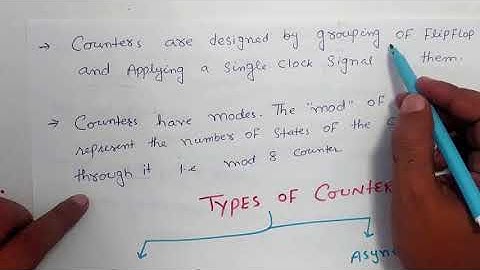 → Counters are designed by grouping of FlipFlop
and Applying a single Clock Signal them.
→ Counters have modes. The "mod" of
represent the number of States of the
through it i.e mod 8 counter
TYPES OF COUNTER
Async